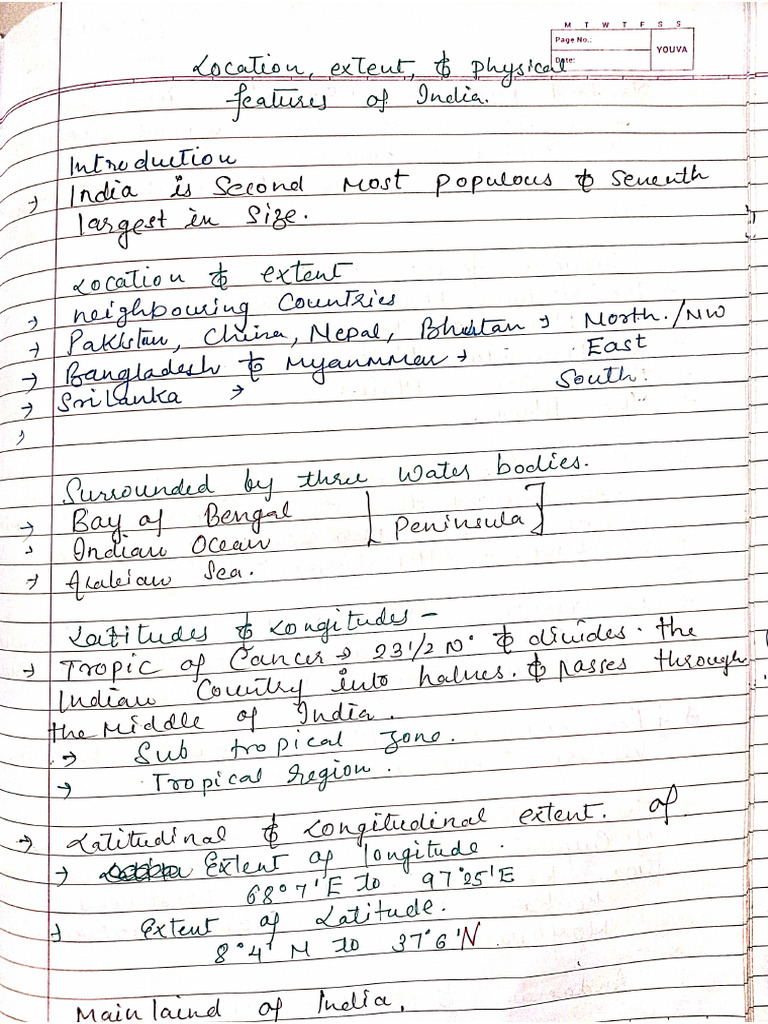 M T W T F S S
Page No.:
YOUVA
Date:
Location, extent, & physical
features of India.
Introduction
→ India is second most populous & seventh
largest in size.
Location & extent
→ neighbouring Countries
→ Pakistan, China, Nepal, Bhutan → North./NW
→ Bangladesh & Myanmmar → East
→ Sri Lanka → South.
Surrounded by three water bodies.
→ Bay of Bengal
→ Indian Ocean [Peninsula]
→ Arabian Sea.
Latitudes & Longitudes –
→ Tropic of Cancer → 23 1/2 N° & divides the
Indian Country into halves. & passes through
the Middle of India.
→ Sub tropical zone.
→ Tropical region.
→ Latitudinal & Longitudinal extent. of
→ Extent of longitude.
68°7'E to 97°25'E
→ Extent of Latitude.
8°4' N to 37°6'N
Main laind of India.